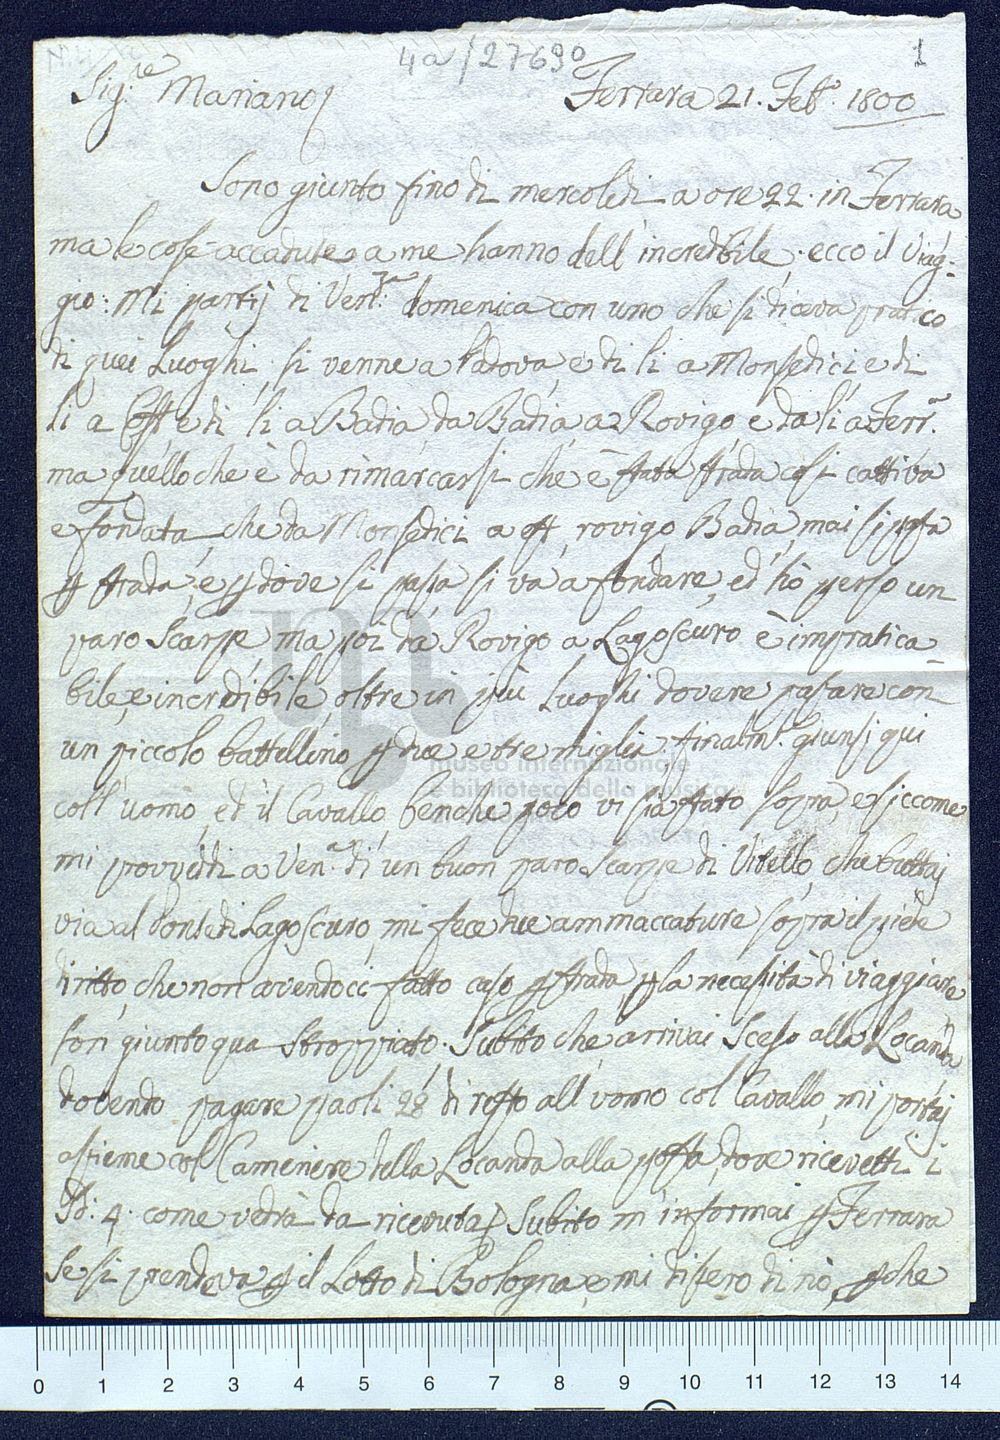 4a/27690
1
Sig.re Mariano
Ferrara 21. Feb.o 1800
Sono giunto fino di mercoledi a ore 22. in Ferrara
ma le cose accadute a me hanno dell incredbile. ecco il Viag-
gio: Mi partij di Ven.a domenica con uno che si diceva pratico
di quei Luoghi, si venne a Padova, e di li a Monsedici e di
li a Est e di li a Badia, da Badia a Rovigo e da li a Ferr.a
ma quello che è da rimarcarsi che è stata strada cosi cattiva
e fondata, che da Monsedici a est, rovigo Badia, mai si passa
p strada, e p dove si passa si va a fondare, ed hò perso un
paro Scarpe, ma poi da Rovigo a Lagoscuro è impratica-
bile, e incredibile, oltre in più Luoghi dovere passare con
un piccolo battellino p due e tre miglia, finalm.te giunsi qui
coll uomo, ed il Cavallo, benche poco vi sia stato sopra, e siccome
mi provviddi a Ven.a di un buon paro Scarpe di Vitello, che buttaj
via al Ponte di Lagoscuro, mi fece due ammaccature sopra il piede
diritto, che non avendoci fatto caso p strada, p la necessità di viaggiare,
son giunto qua stroppiato. Subito che arrivai sceso alla Locanda
dovendo pagare paoli 28 di resto all'uomo col Cavallo, mi portaj
assieme col Cameriere della Locanda alla posta, dove ricevetti i
4. come vedrà da ricevuta. Subito m'informai p Ferrara
se si prendeva p il Lotto di Bologna, e mi dissero di nò, p che
museo internazionale
e biblioteca della musica
0 1 2 3 4 5 6 7 8 9 10 11 12 13 14